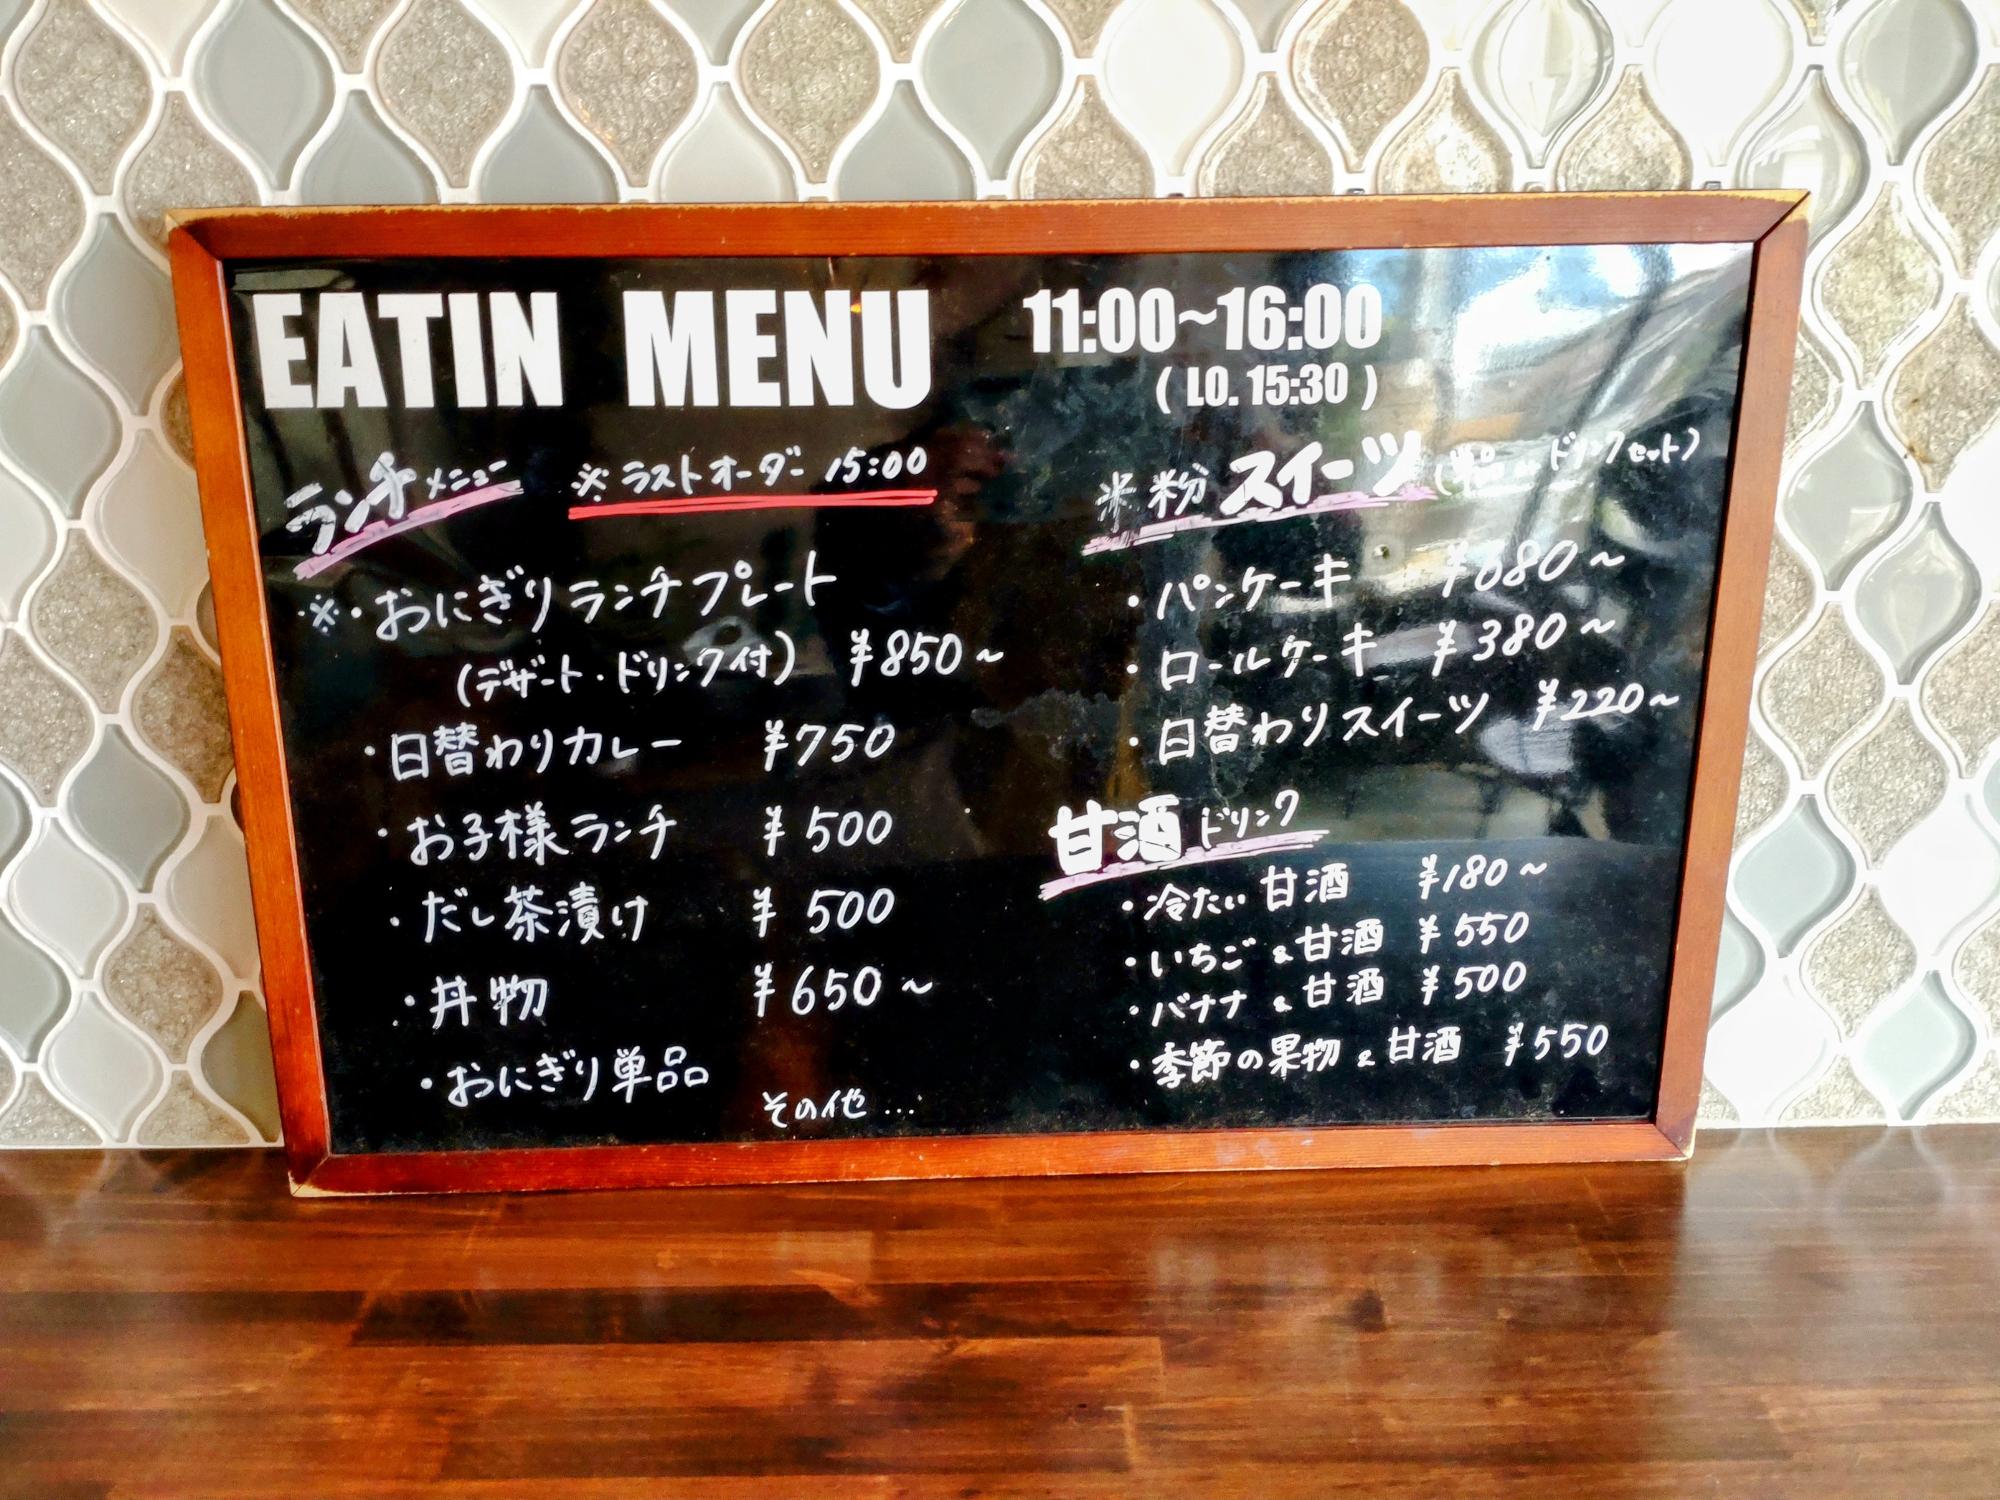 EATIN MENU 11:00~16:00
( LO. 15:30 )
ランチメニュー ※ラストオーダー 15:00
※・おにぎりランチプレート
(デザート・ドリンク付) ¥850~
・日替わりカレー ¥750
・お子様ランチ ¥500
・だし茶漬け ¥500
・丼物 ¥650~
・おにぎり単品
その他...
米粉スイーツ (単品 ドリンクセット)
・パンケーキ ¥680~
・ロールケーキ ¥380~
・日替わりスイーツ ¥220~
甘酒ドリンク
・冷たい甘酒 ¥180~
・いちご&甘酒 ¥550
・バナナ&甘酒 ¥500
・季節の果物&甘酒 ¥550